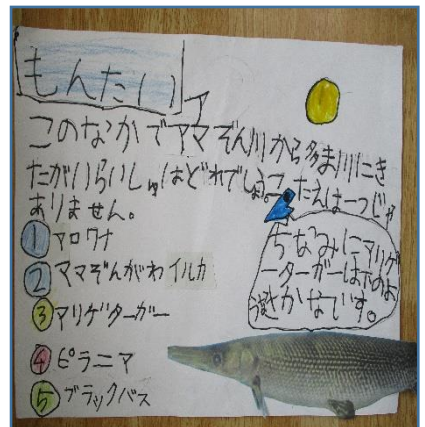 もんだい
このなかでアマぞん川から多ま川にき
たがいらいしゅはどれでしょう。こたえは一つじゃ
ありません。
① アロワナ
② アマぞんがわイルカ
③ アリゲーターガー
④ ピラニア
⑤ ブラックバス
ちなみにアリゲ
ーターガーは下のよ
うなさかなです。